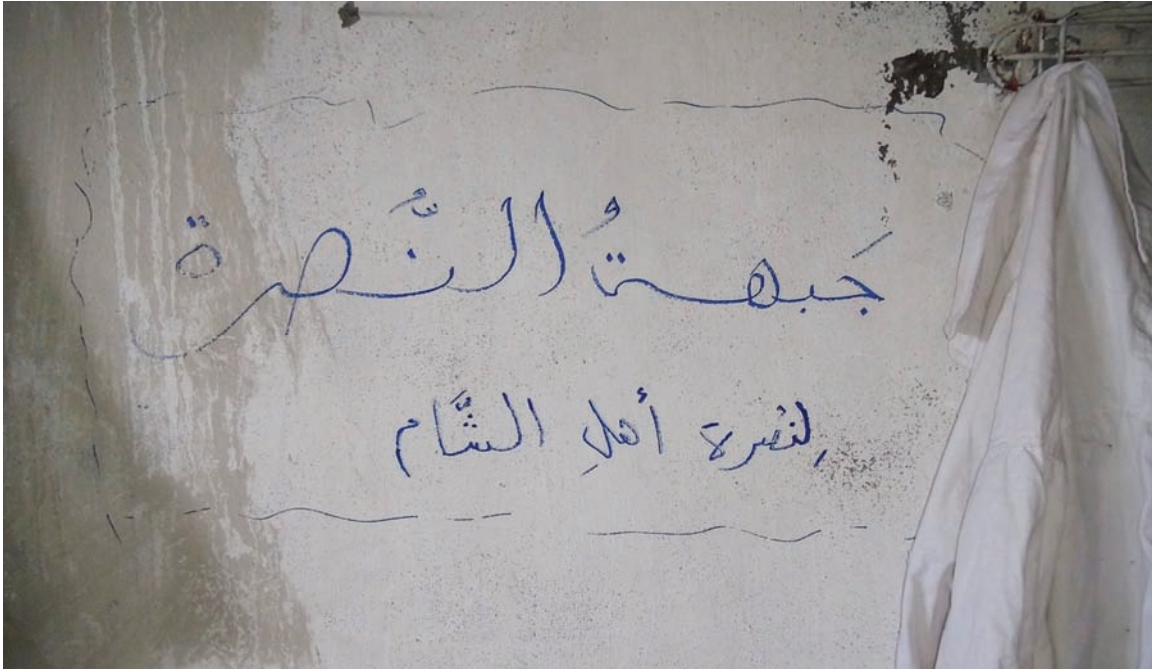 جَبهةُ النُّصرة
لِنصرة أهلِ الشَّام